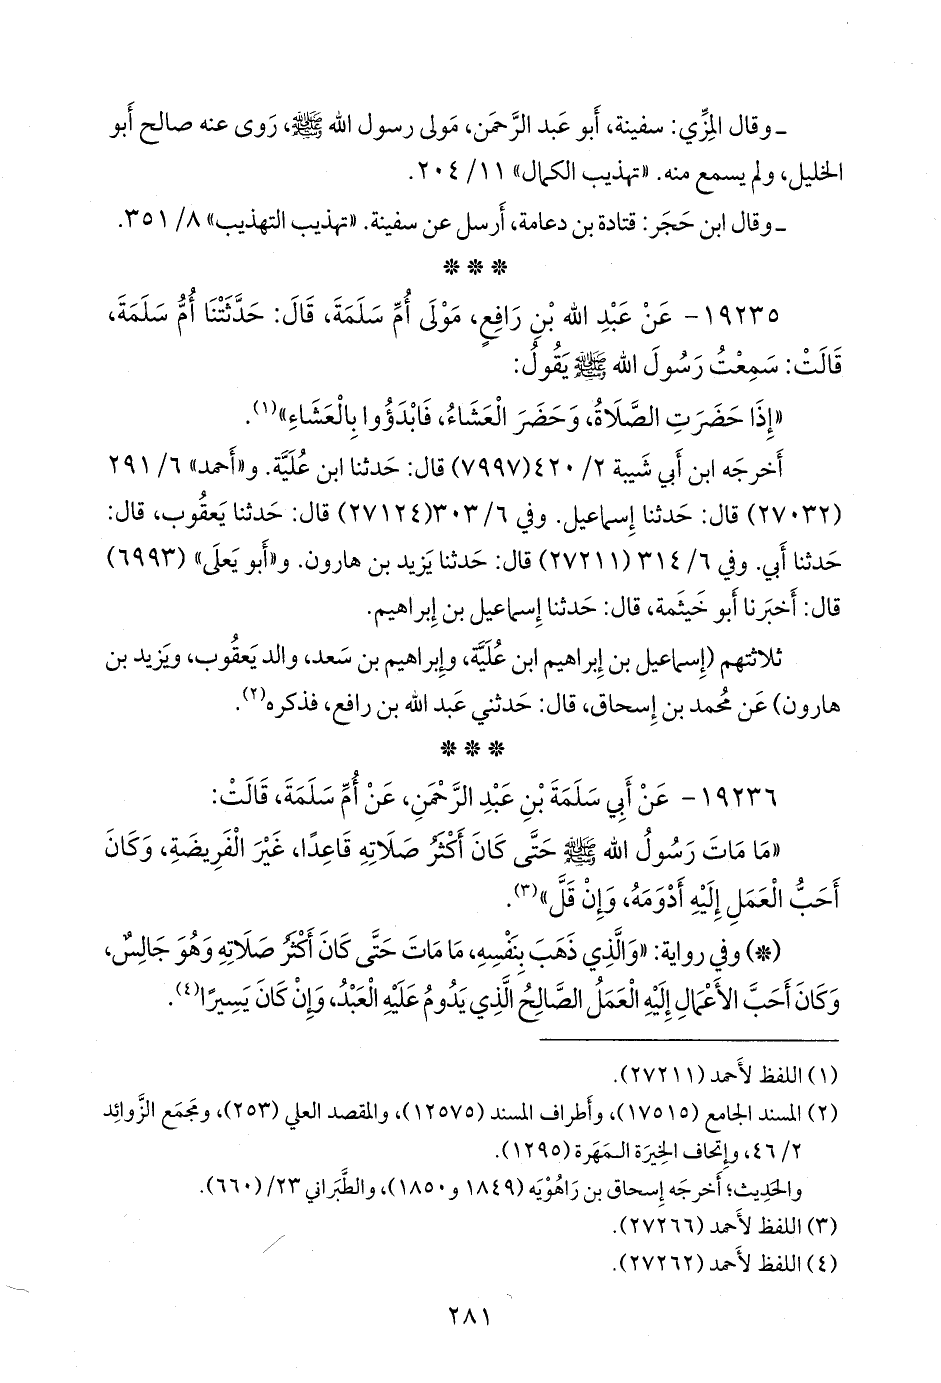 ـ وقال المِزِّي: سفينة، أَبو عَبد الرَّحمَن، مَولى رسول الله ﷺ، رَوى عنه صالح أَبو
الخليل، ولم يسمع منه. «تهذيب الكمال» ١١/ ٢٠٤.
ـ وقال ابن حَجَر: قتادة بن دعامة، أَرسل عن سفينة. «تهذيب التهذيب» ٨/ ٣٥١.
* * *
١٩٢٣٥- عَنْ عَبْدِ الله بْنِ رَافِعٍ، مَوْلَى أُمِّ سَلَمَةَ، قَالَ: حَدَّثَتْنَا أُمُّ سَلَمَةَ،
قَالَتْ: سَمِعْتُ رَسُولَ الله ﷺ يَقُولُ:
«إِذَا حَضَرَتِ الصَّلَاةُ، وَحَضَرَ الْعَشَاءُ، فَابْدَؤُوا بِالْعَشَاءِ»(١).
أَخرجَه ابن أَبي شَيبة ٢/ ٤٢٠(٧٩٩٧) قال: حَدثنا ابن عُلَيَّة. و«أَحمد» ٦/ ٢٩١
(٢٧٠٣٢) قال: حَدثنا إِسماعيل. وفي ٦/ ٣٠٣(٢٧١٢٤) قال: حَدثنا يَعقُوب، قال:
حَدثنا أَبي. وفي ٦/ ٣١٤ (٢٧٢١١) قال: حَدثنا يَزيد بن هارون. و«أَبو يَعلَى» (٦٩٩٣)
قال: أَخبَرنا أَبو خَيثَمة، قال: حَدثنا إِسماعيل بن إِبراهيم.
ثلاثتهم (إِسماعيل بن إِبراهيم ابن عُلَيَّة، وإِبراهيم بن سَعد، والد يَعقُوب، ويَزيد بن
هارون) عَن مُحمد بن إِسحاق، قال: حَدثني عَبد الله بن رافع، فذكره(٢).
* * *
١٩٢٣٦- عَنْ أَبِي سَلَمَةَ بْنِ عَبْدِ الرَّحْمَنِ، عَنْ أُمِّ سَلَمَةَ، قَالَتْ:
«مَا مَاتَ رَسُولُ الله ﷺ حَتَّى كَانَ أَكْثَرُ صَلَاتِهِ قَاعِدًا، غَيْرَ الْفَرِيضَةِ، وَكَانَ
أَحَبُّ الْعَمَلِ إِلَيْهِ أَدْوَمَهُ، وَإِنْ قَلَّ»(٣).
(*) وفي رواية: «وَالَّذِي ذَهَبَ بِنَفْسِهِ، مَا مَاتَ حَتَّى كَانَ أَكْثَرُ صَلَاتِهِ وَهُوَ جَالِسٌ،
وَكَانَ أَحَبَّ الأَعْمَالِ إِلَيْهِ الْعَمَلُ الصَّالِحُ الَّذِي يَدُومُ عَلَيْهِ الْعَبْدُ، وَإِنْ كَانَ يَسِيرًا(٤).
(١) اللفظ لأَحمد (٢٧٢١١).
(٢) المسند الجامع (١٧٥١٥)، وأَطراف المسند (١٢٥٧٥)، والمقصد العلي (٢٥٣)، ومَجمَع الزَّوائِد
٢/ ٤٦، وإِتحاف الخِيرَة الـمَهَرة (١٢٩٥).
والحَدِيث؛ أَخرجَه إِسحاق بن رَاهُوْيَه (١٨٤٩ و١٨٥٠)، والطَّبَراني ٢٣/(٦٦٠).
(٣) اللفظ لأَحمد (٢٧٢٦٦).
(٤) اللفظ لأَحمد (٢٧٢٦٢).
٢٨١